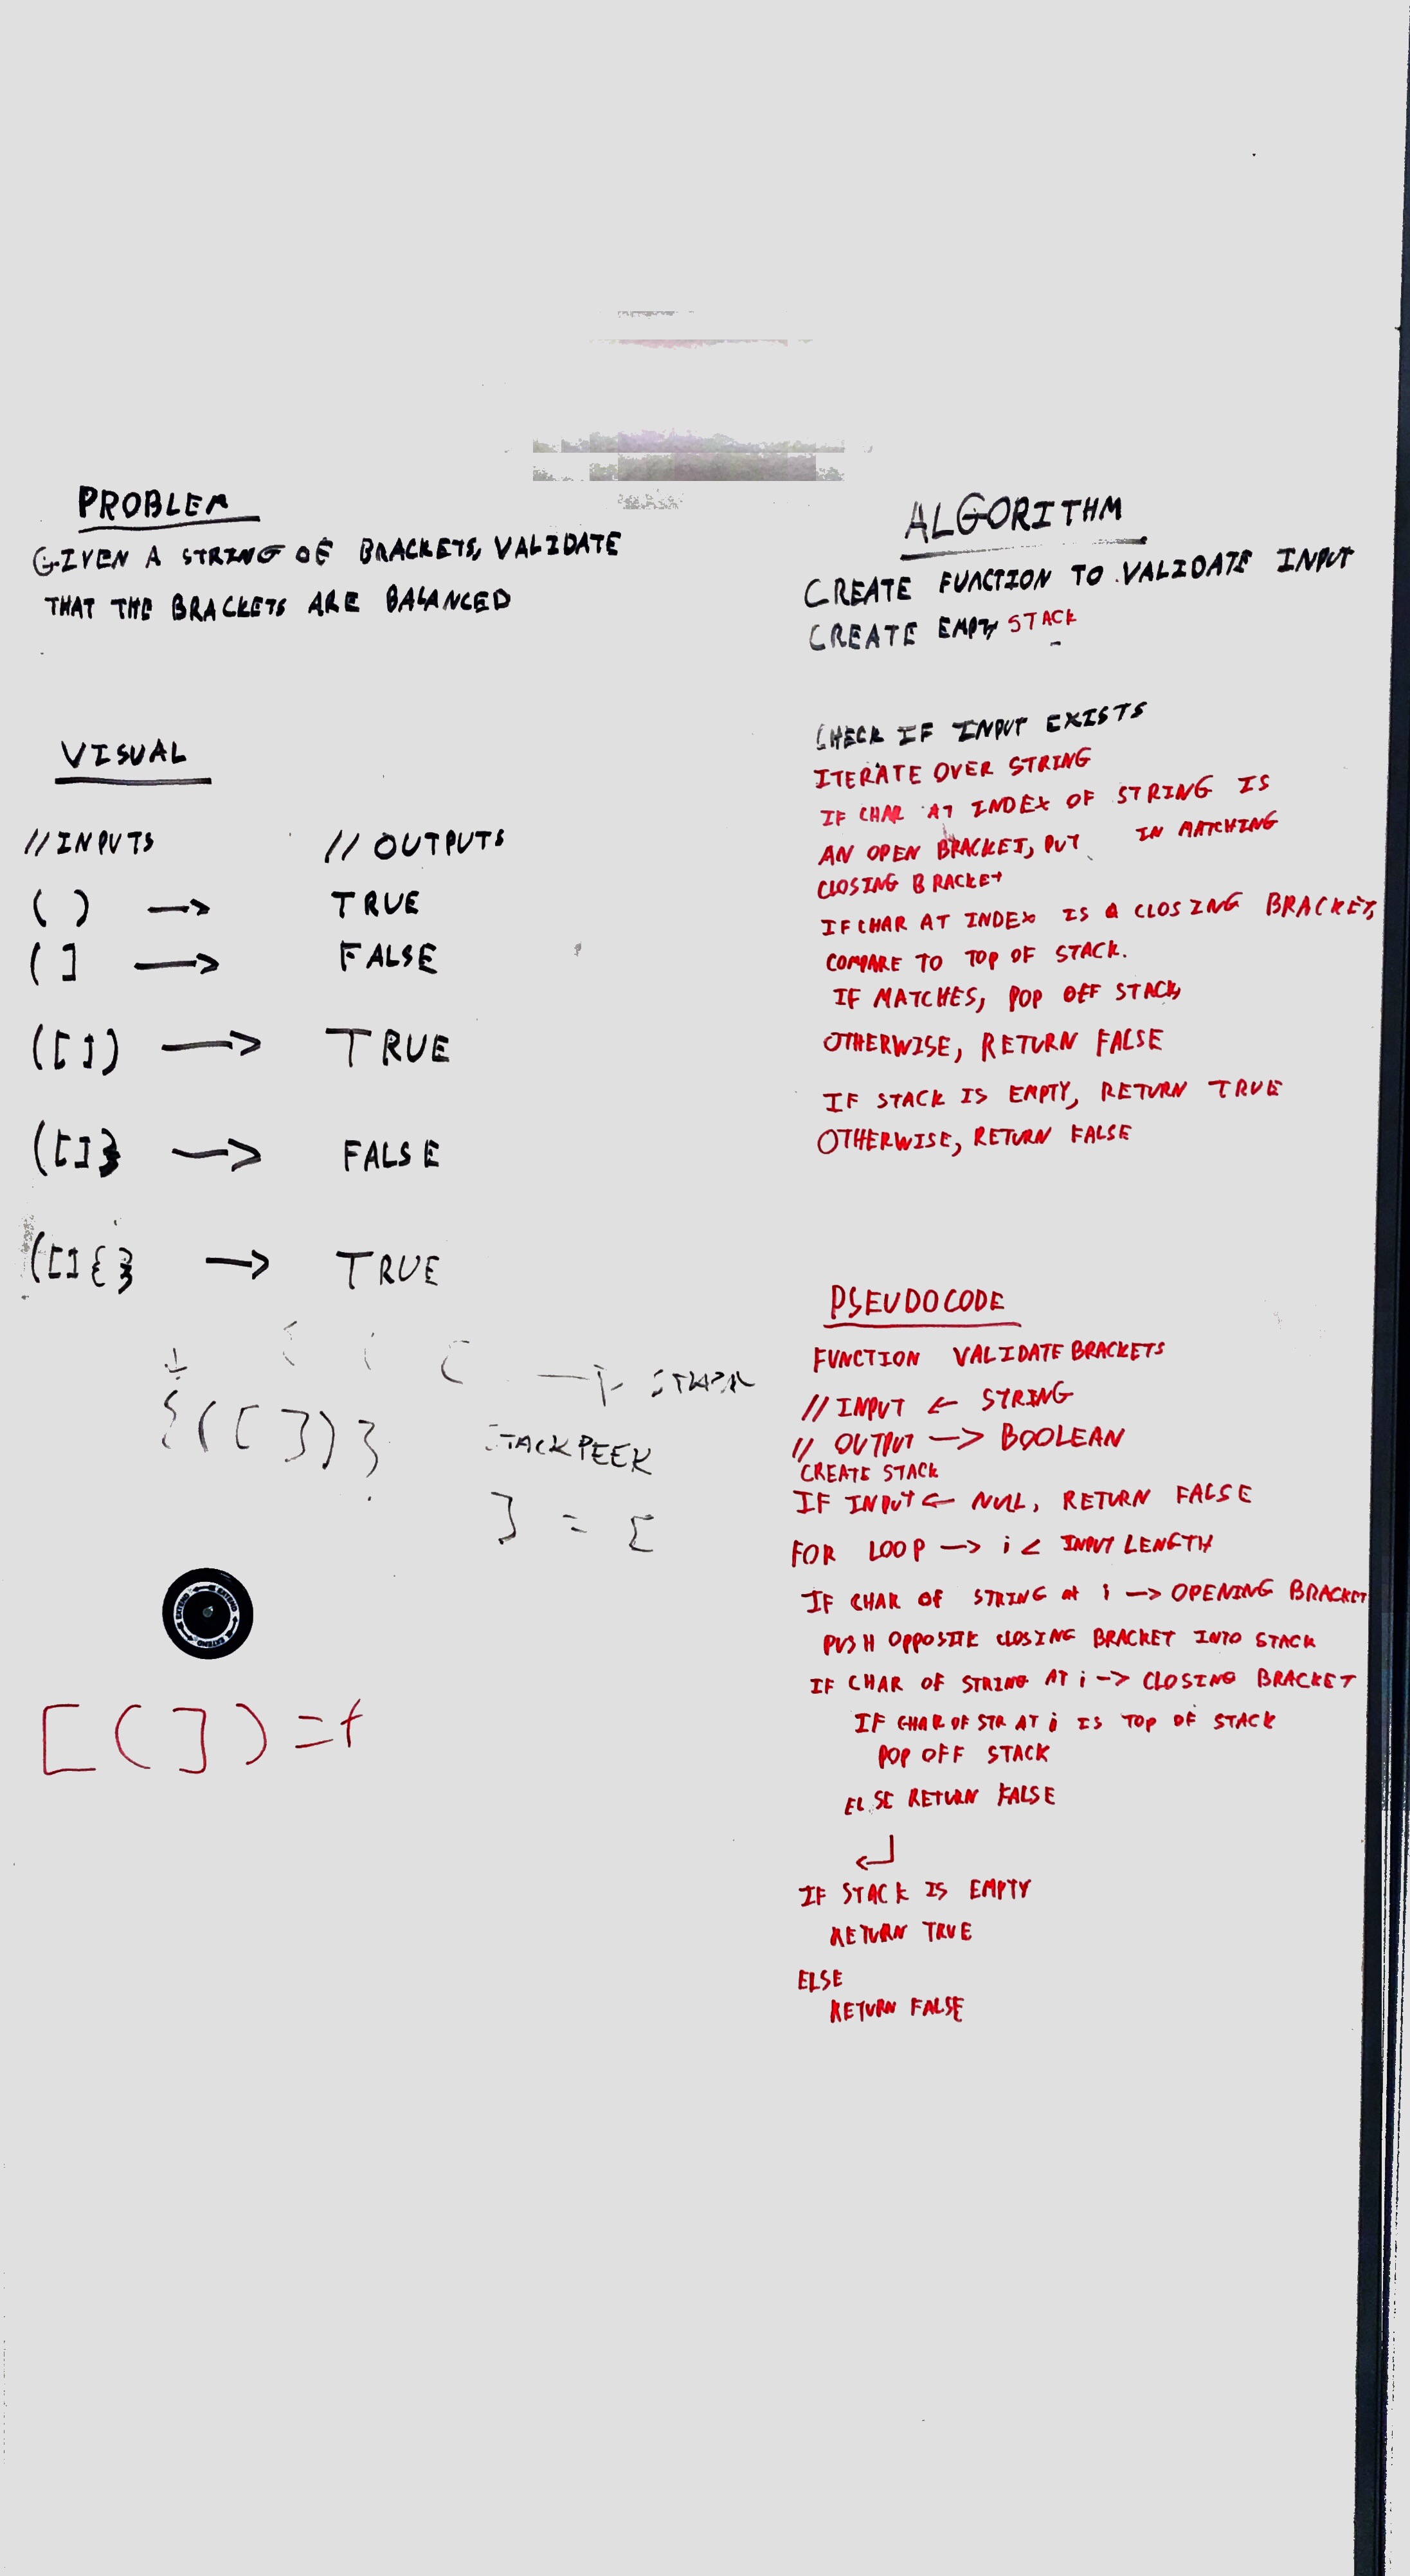 PROBLEM
GIVEN A STRING OF BRACKETS, VALIDATE
THAT THE BRACKETS ARE BALANCED
VISUAL
// INPUTS // OUTPUTS
( ) → TRUE
( ] → FALSE
([]) → TRUE
([]} → FALSE
([]{} → TRUE
{([])}
STACK PEEK
] = [
EXTEND EXTEND EXTEND
[(])=f
ALGORITHM
CREATE FUNCTION TO VALIDATE INPUT
CREATE EMPTY STACK
CHECK IF INPUT EXISTS
ITERATE OVER STRING
IF CHAR AT INDEX OF STRING IS
AN OPEN BRACKET, PUT IN MATCHING
CLOSING BRACKET
IF CHAR AT INDEX IS A CLOSING BRACKET,
COMPARE TO TOP OF STACK.
IF MATCHES, POP OFF STACK
OTHERWISE, RETURN FALSE
IF STACK IS EMPTY, RETURN TRUE
OTHERWISE, RETURN FALSE
PSEUDOCODE
FUNCTION VALIDATE BRACKETS
// INPUT ← STRING
// OUTPUT → BOOLEAN
CREATE STACK
IF INPUT ← NULL, RETURN FALSE
FOR LOOP → i < INPUT LENGTH
IF CHAR OF STRING AT i → OPENING BRACKET
PUSH OPPOSITE CLOSING BRACKET INTO STACK
IF CHAR OF STRING AT i → CLOSING BRACKET
IF CHAR OF STR AT i IS TOP OF STACK
POP OFF STACK
ELSE RETURN FALSE
↵
IF STACK IS EMPTY
RETURN TRUE
ELSE
RETURN FALSE